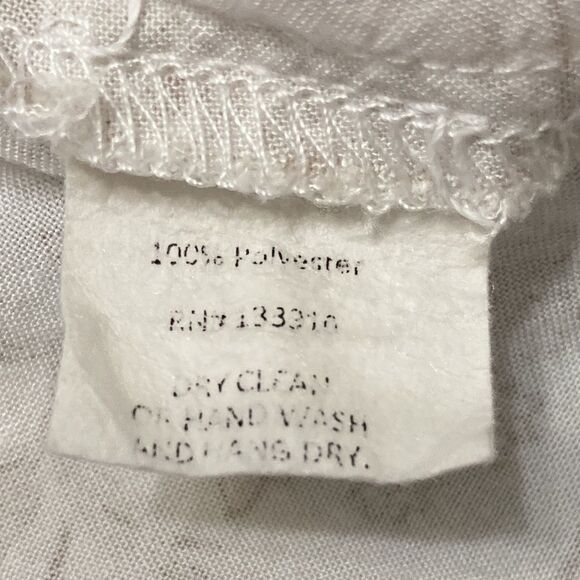 100% Polyester
RN# 133310
DRY CLEAN
OR HAND WASH
AND HANG DRY.